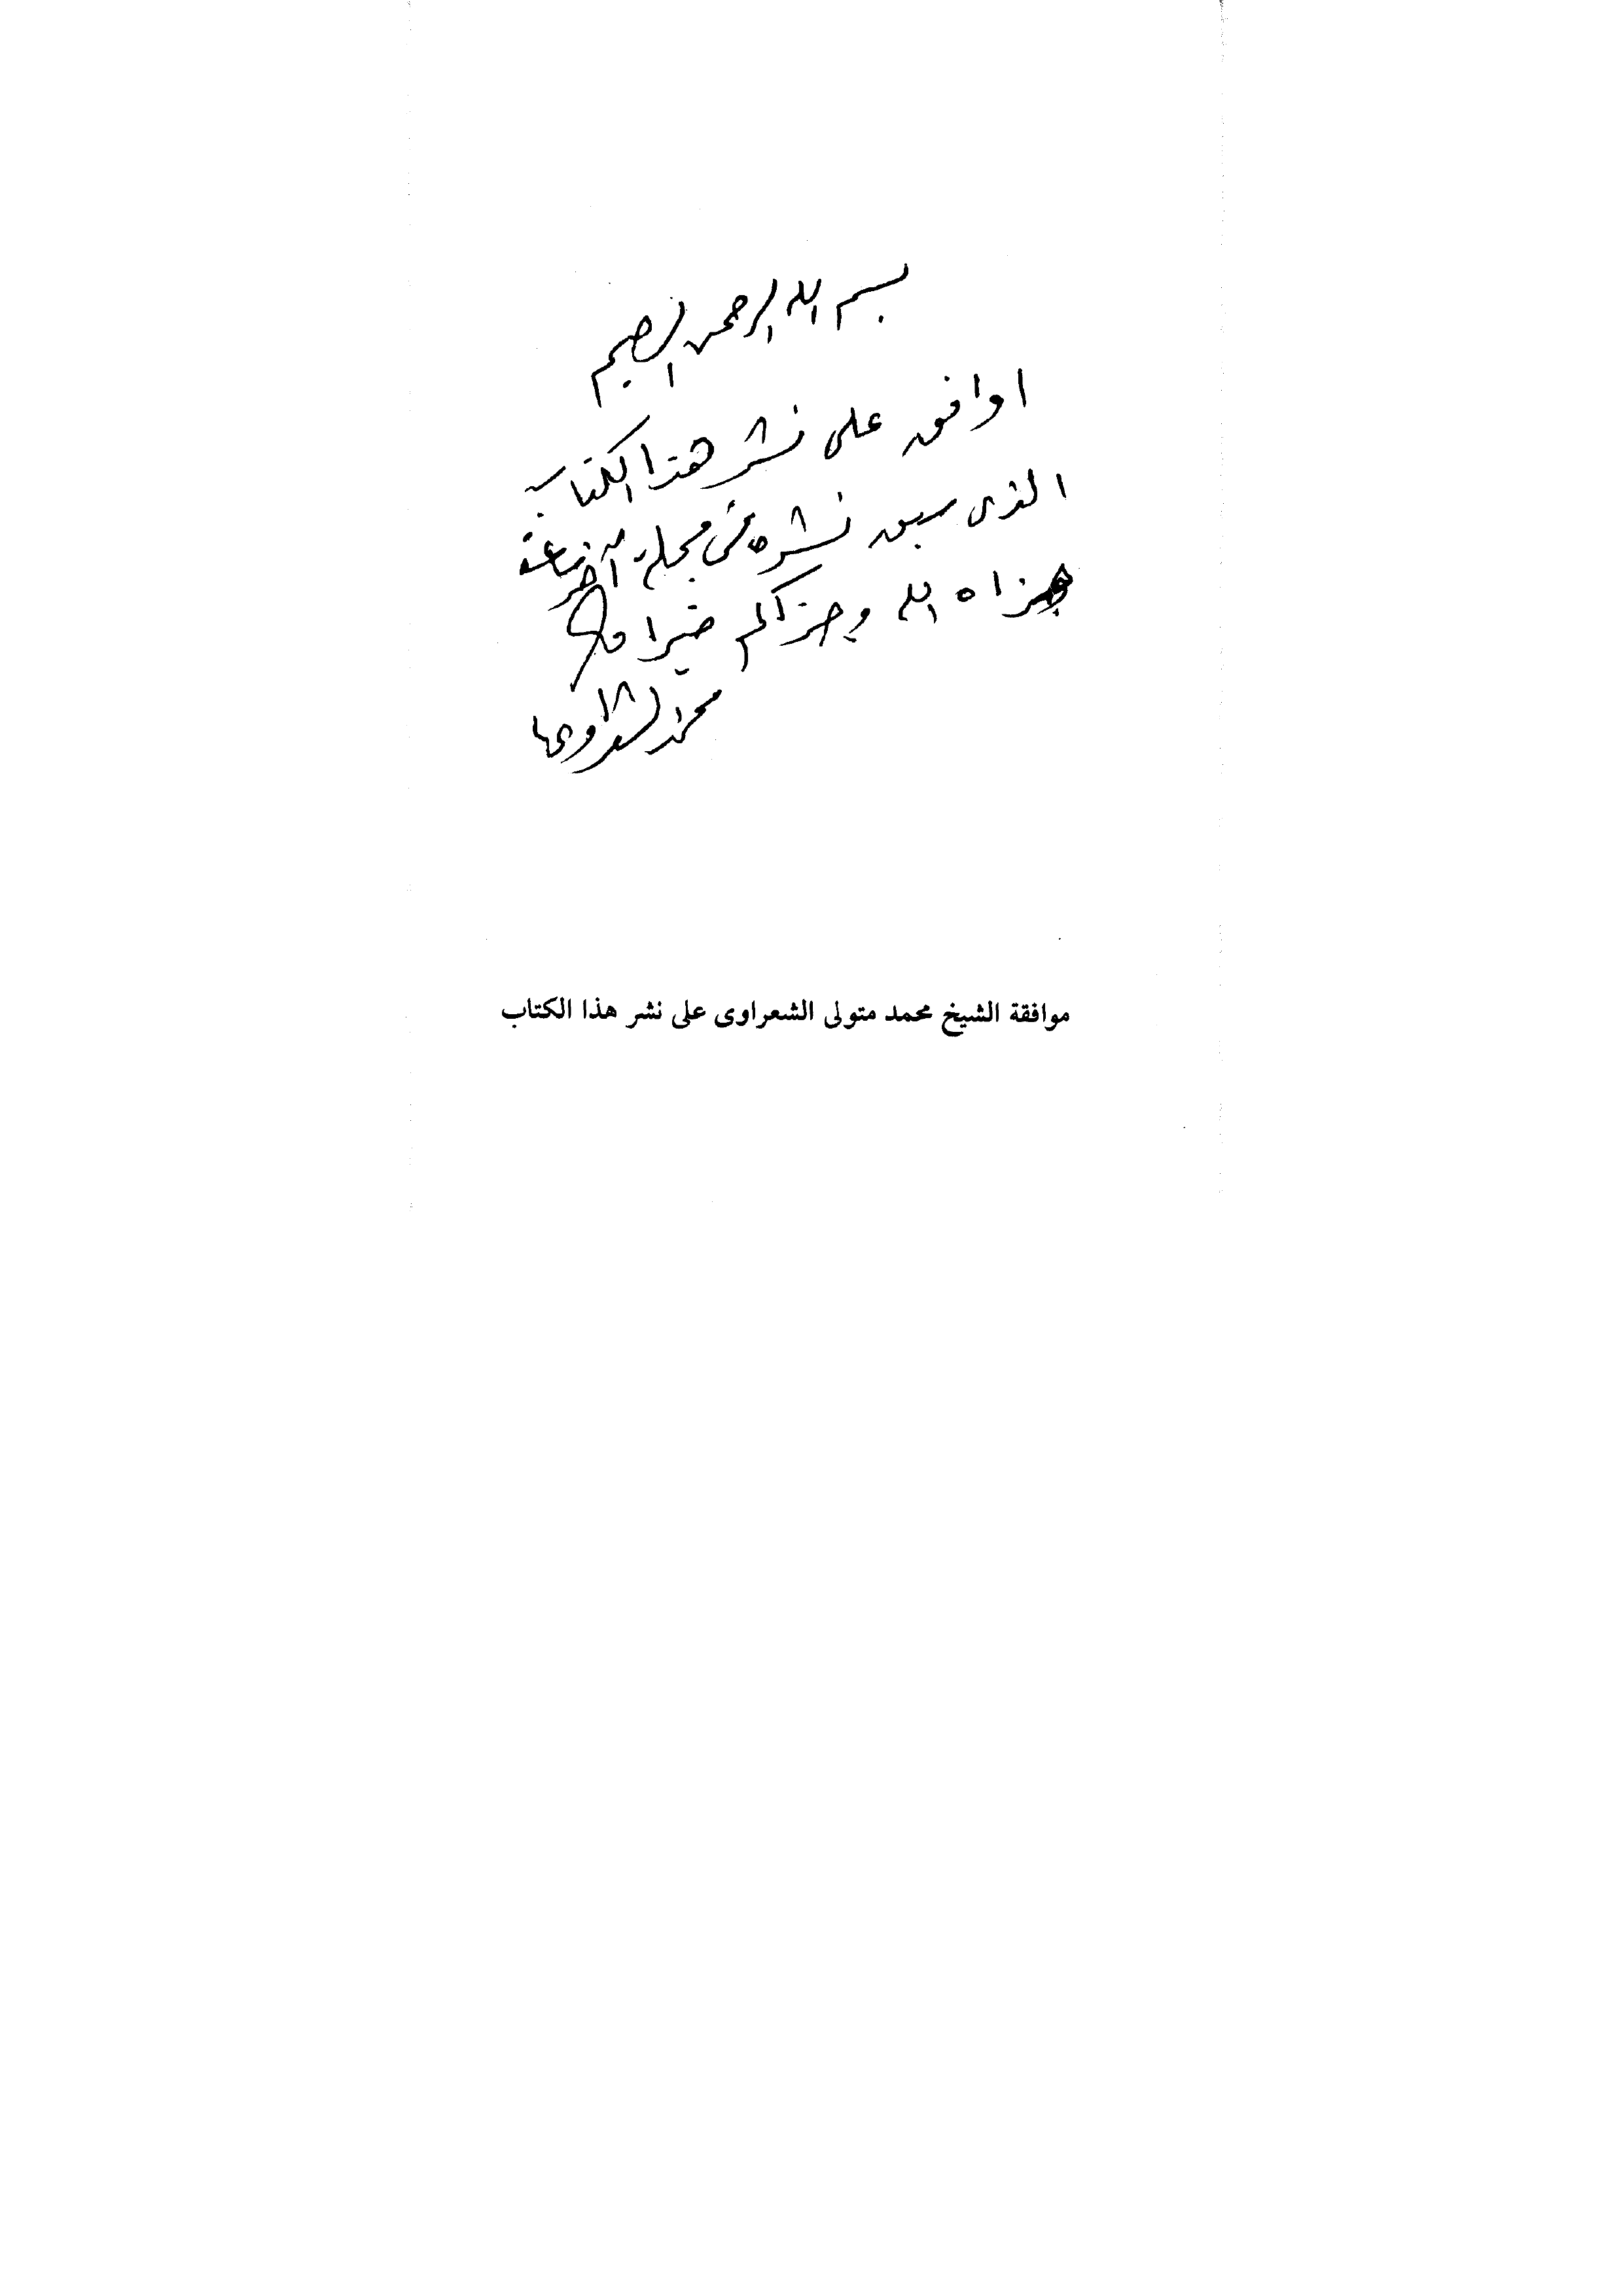 بسم الله الرحمن الرحيم
اوافق على نشر هذا الكتاب
الذى سبق نشره فى مجلة آخر ساعة
جزاه الله وجزاكم خيرا
محمد الشعراوى
موافقة الشيخ محمد متولى الشعراوى على نشر هذا الكتاب